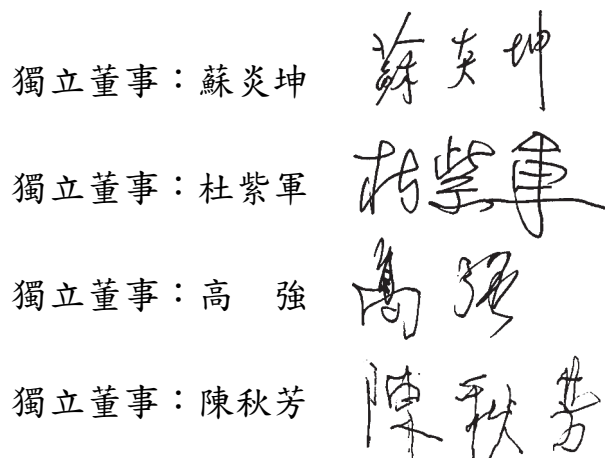 獨立董事：蘇炎坤 蘇炎坤
獨立董事：杜紫軍 杜紫軍
獨立董事：高　強 高強
獨立董事：陳秋芳 陳秋芳